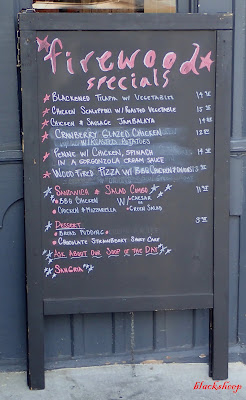 firewood
specials
Blackened Tilapia w/ Vegetables
Chicken Scallopini w/ Roasted Vegetable
Chicken & Sausage Jambalaya
Cranberry Glazed Chicken
w/ Roasted Potatoes
Penne w/ Chicken, Spinach
in a Gorgonzola Cream Sauce
Wood Fired Pizza w/ BBQ Chicken & Onions
Sandwich & Salad Combo
BBQ Chicken w/ Caesar
or
Chicken & Mozzarella Green Salad
Dessert
Bread Pudding
Chocolate Strawberry Short Cake
Ask About Our Soup of the Day
Sangria
blacksheep